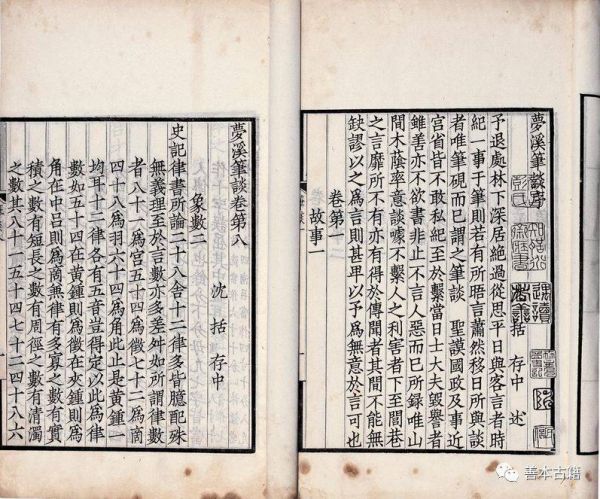 夢溪筆談序
括 存中 述
予退處林下深居絶過從思平日與客言者時
紀一事于筆則若有所晤言蕭然移日所與談
者唯筆硯而已謂之筆談 聖謨國政及事近
宮省皆不敢私紀至於繫當日士大夫毀譽者
雖善亦不欲書非止不言人惡而已所録唯山
間木蔭率意談噱不繫人之利害者下至閭巷
之言靡所不有亦有得於傳聞者其間不能無
缺謬以之為言則甚卑以予為無意於言可也
卷第一
故事一
夢溪筆談卷第八
沈 括 存中
象數二
史記律書所論二十八舍十二律多皆臆配殊
無義理至於言數亦多差舛如所謂律數
者八十一為宮五十四為徵七十二為商
四十八為羽六十四為角此止是黃鍾一
均耳十二律各有五音豈得定以此為律
數如五十四在黃鍾則為徵在夾鍾則為
角在中呂則為商兼律有多寡之數有實
積之數有短長之數有周徑之數有清濁
之數其八十一五十四七十二四十八六
善本古籍